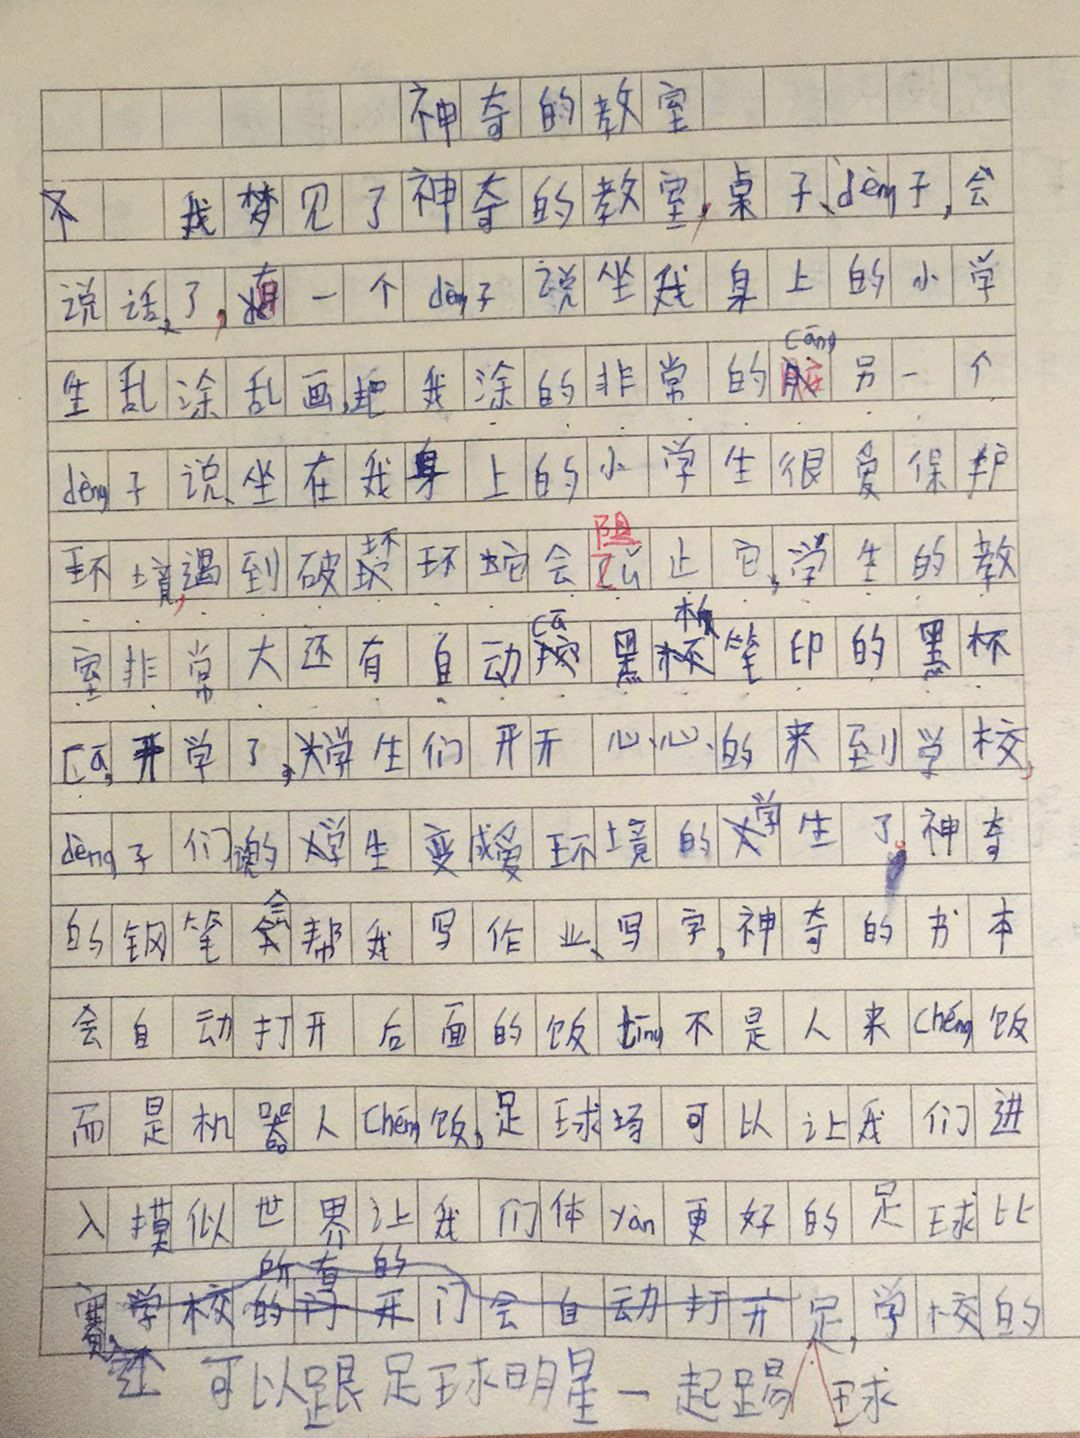 神奇的教室
我梦见了神奇的教室,桌子、dèng子,会
说话了,有一个dèng子说坐我身上的小学
生乱涂乱画,把我涂的非常的脏cāng另一个
dèng子说、坐在我身上的小学生很爱保护
环境,遇到破坏环蛇会阻zǔ止它,学生的教
室非常大还有自动cā黑板笔印的黑杯
cā,开学了,学生们开开心心的来到学校,
dèng子们说的学生变成爱环境的学生了。神奇
的钢笔会帮我写作业、写字,神奇的书本
会自动打开后面的饭tīng不是人来chéng饭
而是机器人chéng饭,足球场可以让我们进
入摸似世界让我们体yàn更好的足球比
赛,学校的所有的门会自动打开定,学校的
还可以跟足球明星一起踢球